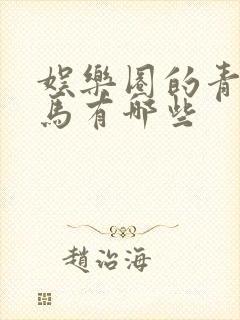 娱樂圈的青
馬有哪些
趙治海